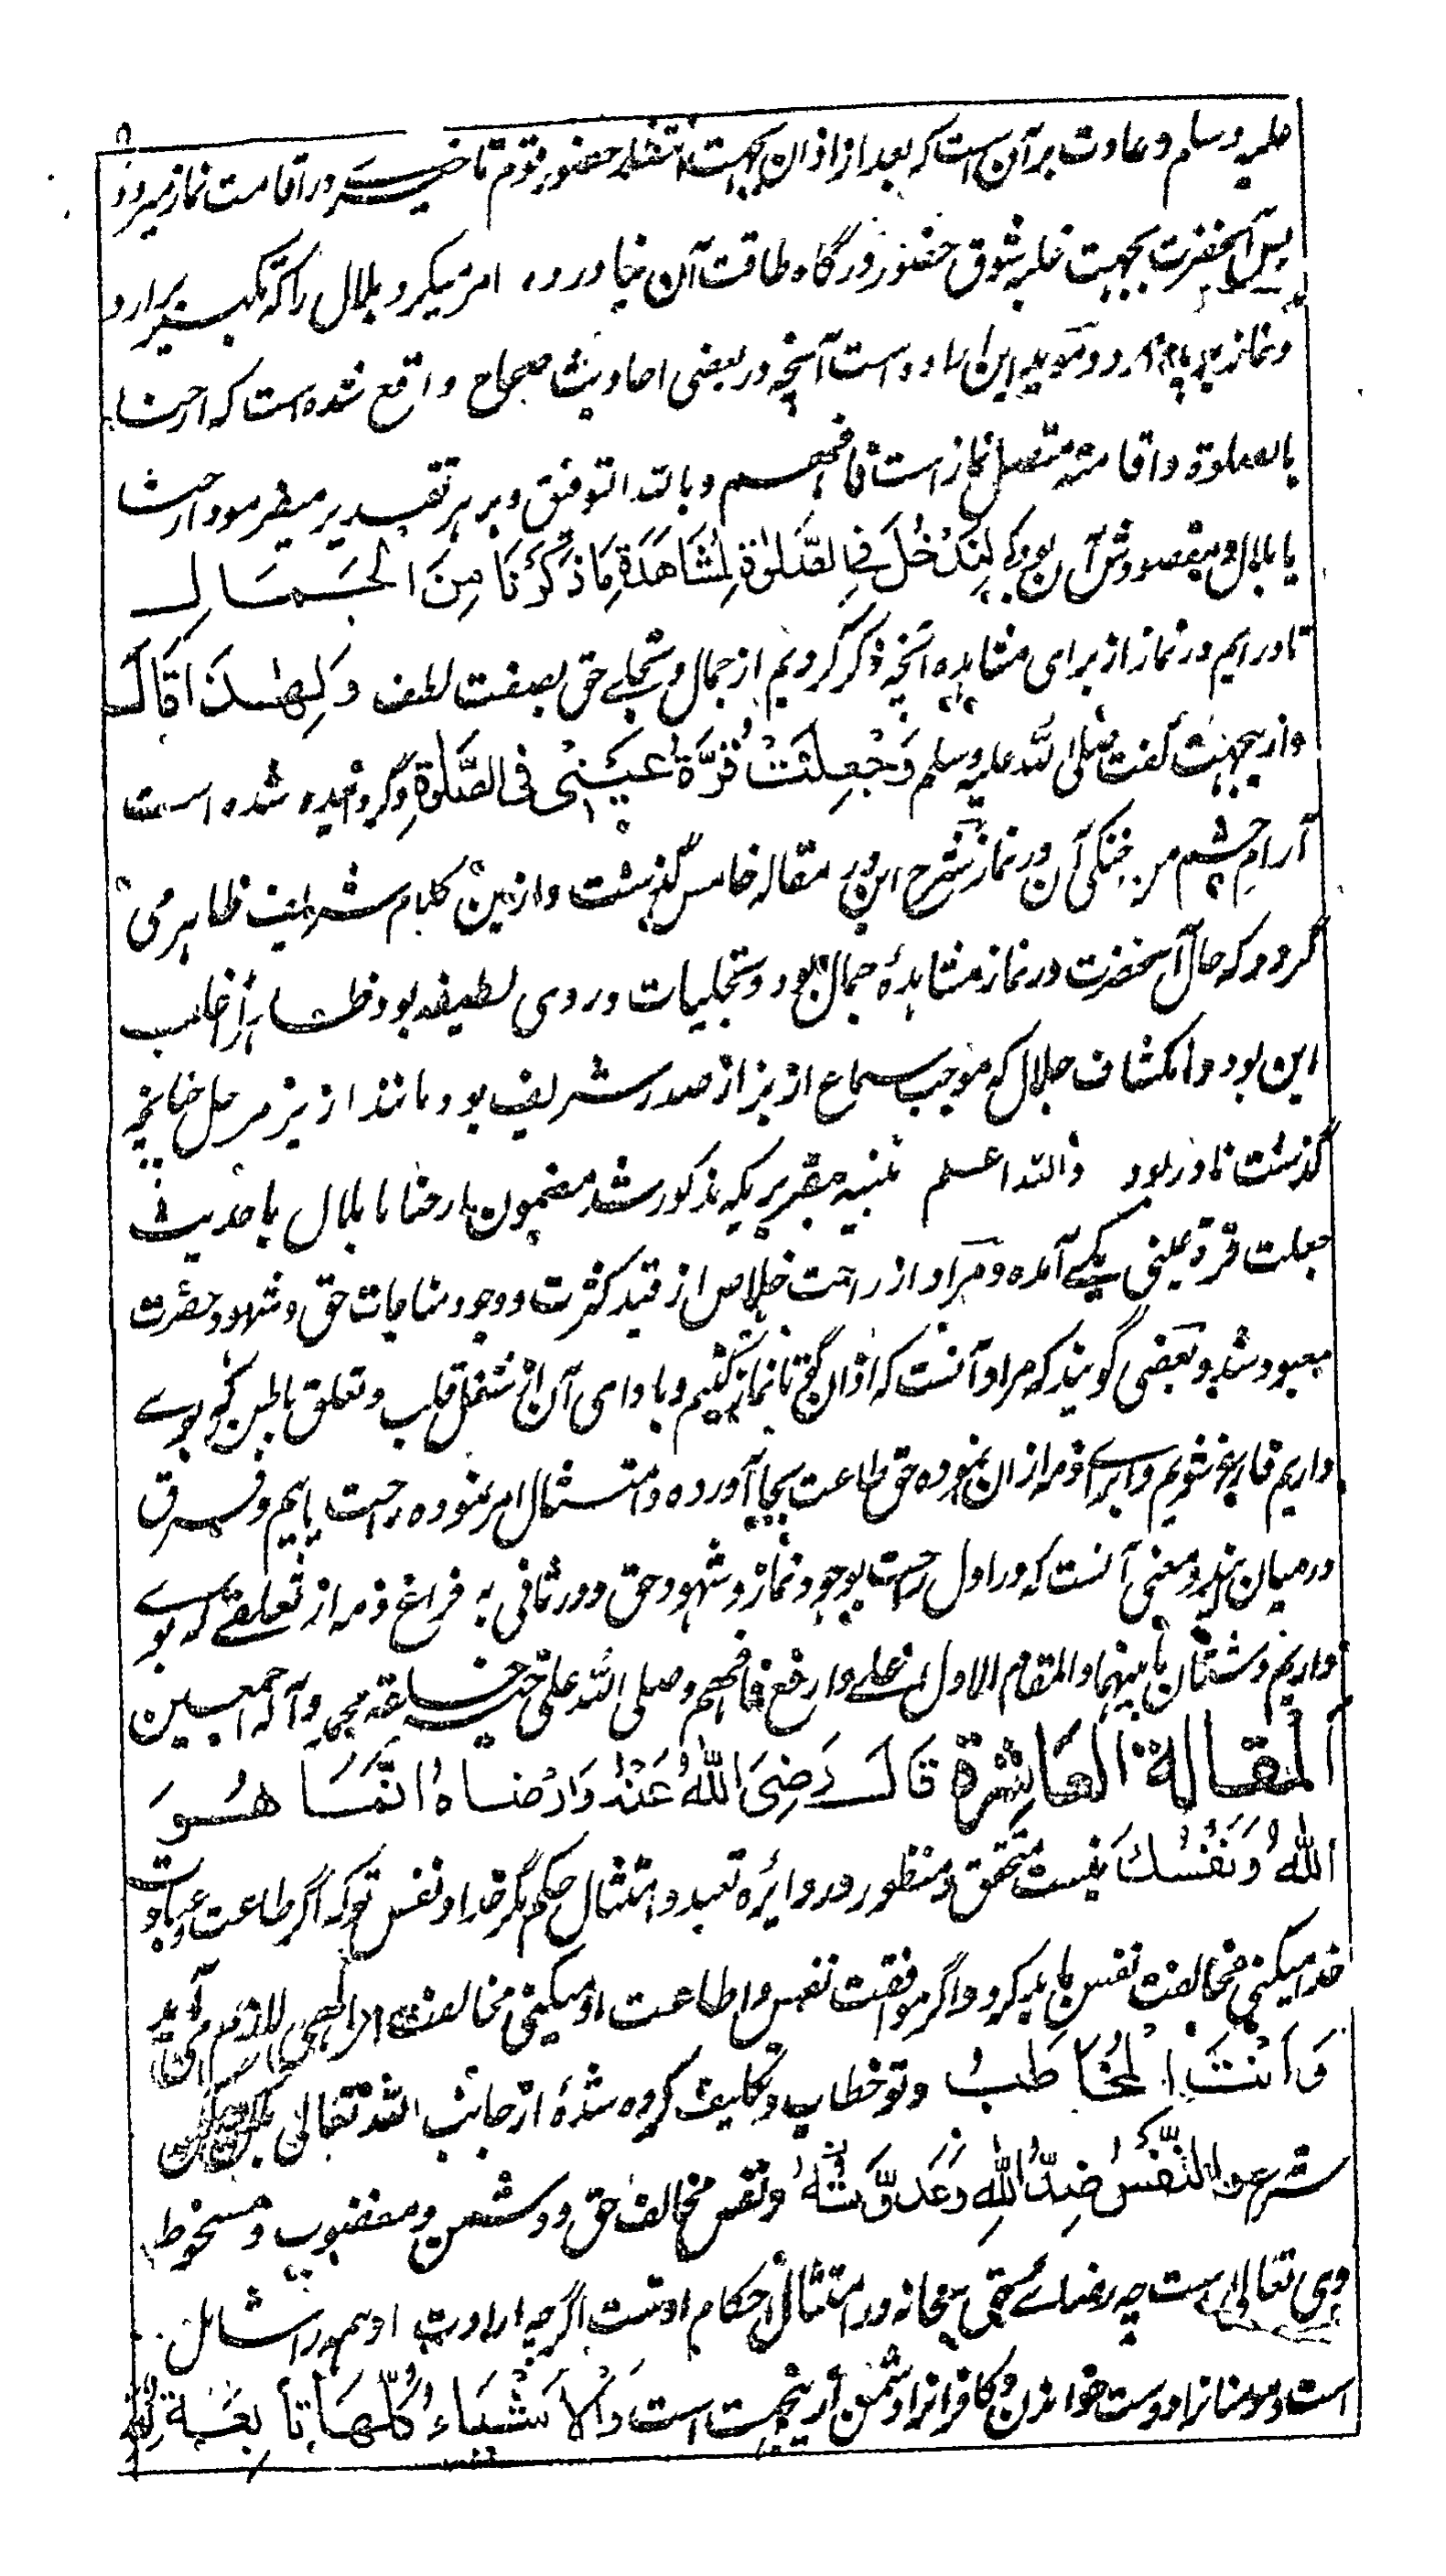 علیه وسلم و عادت بر آن است که بعد از اذان بجهت انتظار حضور قوم تاخیرے در اقامت نماز میرود
پس آنحضرت بجهت غلبه شوق حضور درگاه طاقت آن نیاورده امر میکرد بلال را که تکبیر برآرد
و نماز بر پا دارد و مؤید این اراده است آنچه در بعضی احادیث صحاح واقع شده است که ارحنا
بالصلوة و اقامته متصل نماز است فافهم وبالله التوفیق و بر هر تقدیر میفرمود ارحنا
یا بلال و مقصودش آن بود که لِنَدْخُلَ فِی الصَّلٰوةِ لِمُشَاهَدَةِ مَا ذَكَرْنَا مِنَ الْجَمَالِ
تا درایم در نماز از برای مشاهده آنچه ذکر کردیم از جمال و تجلے حق بصفت لطف وَلِهٰذَا قَالَ
و ازینجهت گفت صلی الله علیه وسلم وَجُعِلَتْ قُرَّةُ عَیْنِیْ فِی الصَّلٰوةِ و گردانیده شده است
آرام چشم من و خنکی آن در نماز شرح این در مقاله خامس گذشت و ازین کلام شریف ظاهر می
گردد که حال آنحضرت در نماز مشاهدهٔ جمال بود و تجلیات در وی لطیفه بود ظاهرا غالب
این بود و انکشاف جلال که موجب سماع ازیز از صدر شریف بود مانند ازیز مرجل چنانچه
گذشت نادر بود والله اعلم تنبیه بتقریریکه مذکور شد مضمون ارحنا یا بلال با حدیث
جعلت قرة عینی یکے آمده و مراد از راحت خلاص از قید کثرت و وجود مناجات حق و شهود حضرت
معبود شد و بعضی گویند که مراد آنست که اذان گو تا نماز کنیم و با دای آن از شغل قلب و تعلق باطن که بوے
داریم فارغ شویم و ابراے ذمه ازان نموده حق طاعت بجا آورده و امتثال امر نموده راحت یابیم و فرق
درمیان این دو معنی آنست که در اول راحت بوجود نماز و شهود حق و در ثانی به فراغ ذمه از تعلقے که بوے
داریم و شتان ما بینهما والمقام الاول اعلے وارفع فافهم وصلی الله علی خیر خلقه محمد وآله اجمعین
اَلْمَقَالَةُ الْعَاشِرَةُ قَالَ رَضِیَ اللّٰهُ عَنْهُ وَاَرْضَاهُ اِنَّمَا هُوَ
اللّٰهُ وَنَفْسُكَ نیست متحقق و منظور در دائره تعبد و امتثال حکم مگر خدا و نفس تو که اگر طاعت و عبادت
خدا میکنی مخالفت نفس باید کرد و اگر موافقت نفس و اطاعت او میکنی مخالفت امر الهی لازم می آید
وَاَنْتَ الْمُخَاطَبُ و تو خطاب و تکلیف کرده شدهٔ از جانب الله تعالی
شرع وَالنَّفْسُ ضِدُّ اللّٰهِ وَعَدُوَّتُهُ و نفس مخالف حق و دشمن و مغضوب و مسخوط
وی تعالی است چه رضاے حق سبحانه در امتثال احکام اوست اگرچه ارادت او همه را شامل
است و مومنانرا دوست خواندن و کافرانرا دشمن ازینجهت است وَالْاَشْیَاءُ كُلُّهَا تَابِعَةٌ لِلّٰهِ